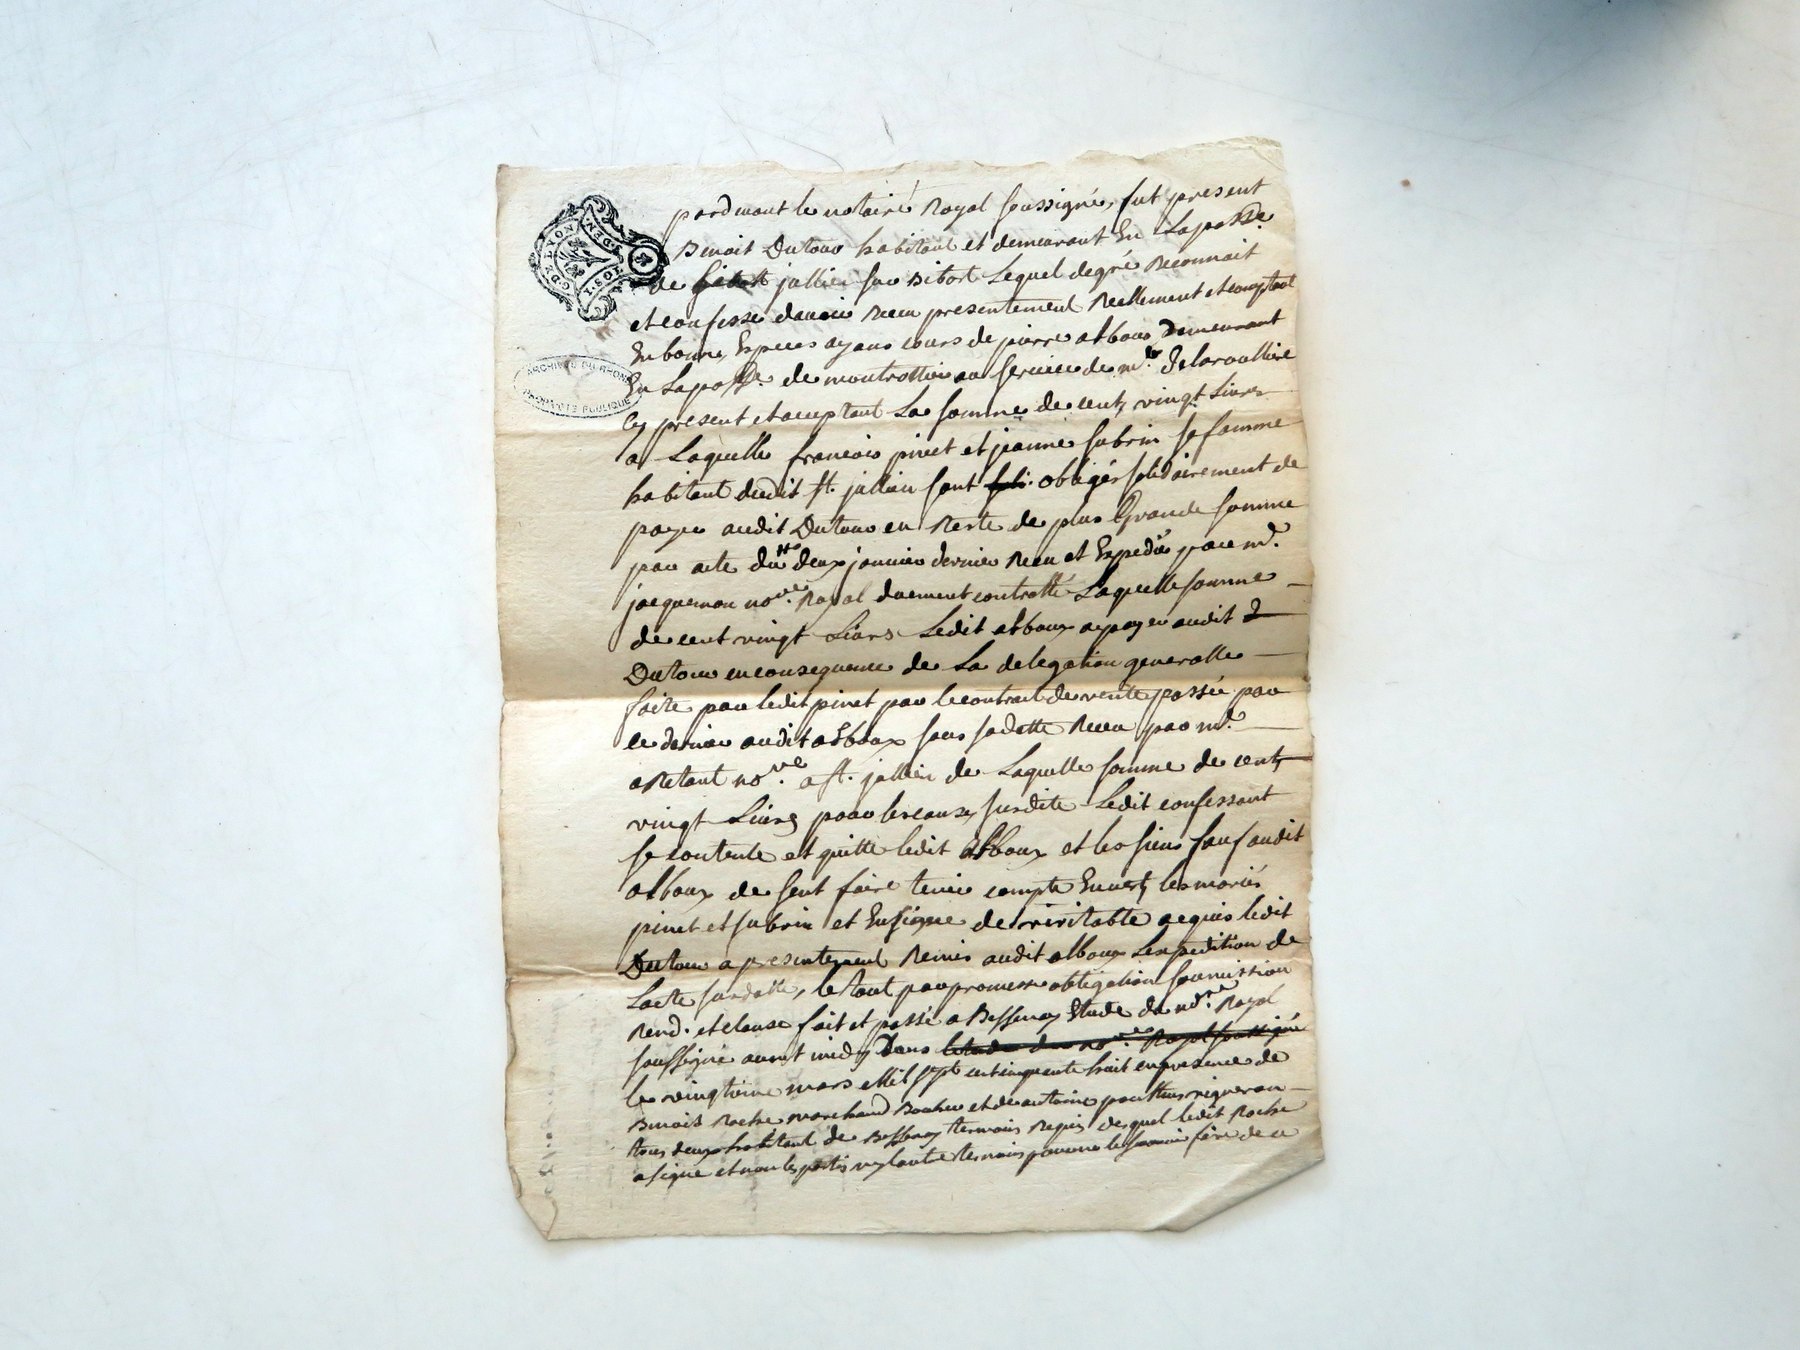 G. DE LYON
DEN.
ARCHIVES DU RHONE
PROPRIETE PUBLIQUE
pardevant le notaire Royal soussigné, fut present
Benoit Dutour habitant et demeurant En Laparse.
de jullien sur bibost Lequel degré Reconnait
et confesse davoir Receu presentement Reellement et comptant
En bonnes Especes ayans cours de pierre alboux Demeurant
En Laparse. de montrottier au service de mr. Delaroulliere
Cy present et aceptant La somme de cent vingt Livres
a Laquelle francois pinet et jeanne subrin sa famme
habitant dudit st. jullien sont obligés solidairement de
payer audit Dutour en Reste de plus Grande somme
par acte du deux janvier dernier Receu et Expedié par me.
jacquemon nore. Royal duement controllé Laquelle somme
de cent vingt Livres Ledit alboux a payé audit
Dutour en consequence de La delegation generalle
faite par ledit pinet par le contrat de vente passée par
ce dernier audit alboux sous sadatte Receu par me.
nore. a st. jullien de Laquelle somme de cent
vingt Livres pour les causes susdite Ledit confessant
se contente et quitte ledit alboux et les siens sauf audit
alboux de sent faire tenir compte Envert les mariés
pinet et subrin et En signe de veritable acquis ledit
Dutour a presentement Remis audit alboux Lexpedition de
Lacte susdatté, le tout par promesse obligation soumission
Rend. et clause fait et passé a Bessenay Etude du nore. Royal
soussigné avant midy Dans letude du nore. Royal soussigné
le vingt mars Mil sept cent cinquante huit en presence de
Benoit Roche marchand et de antoine vigneron
tous deux habitant de Bessenay temoins Requis desquel ledit Roche
a signe et non les partis ny lautre temoins pour ne le savoir faire de ce